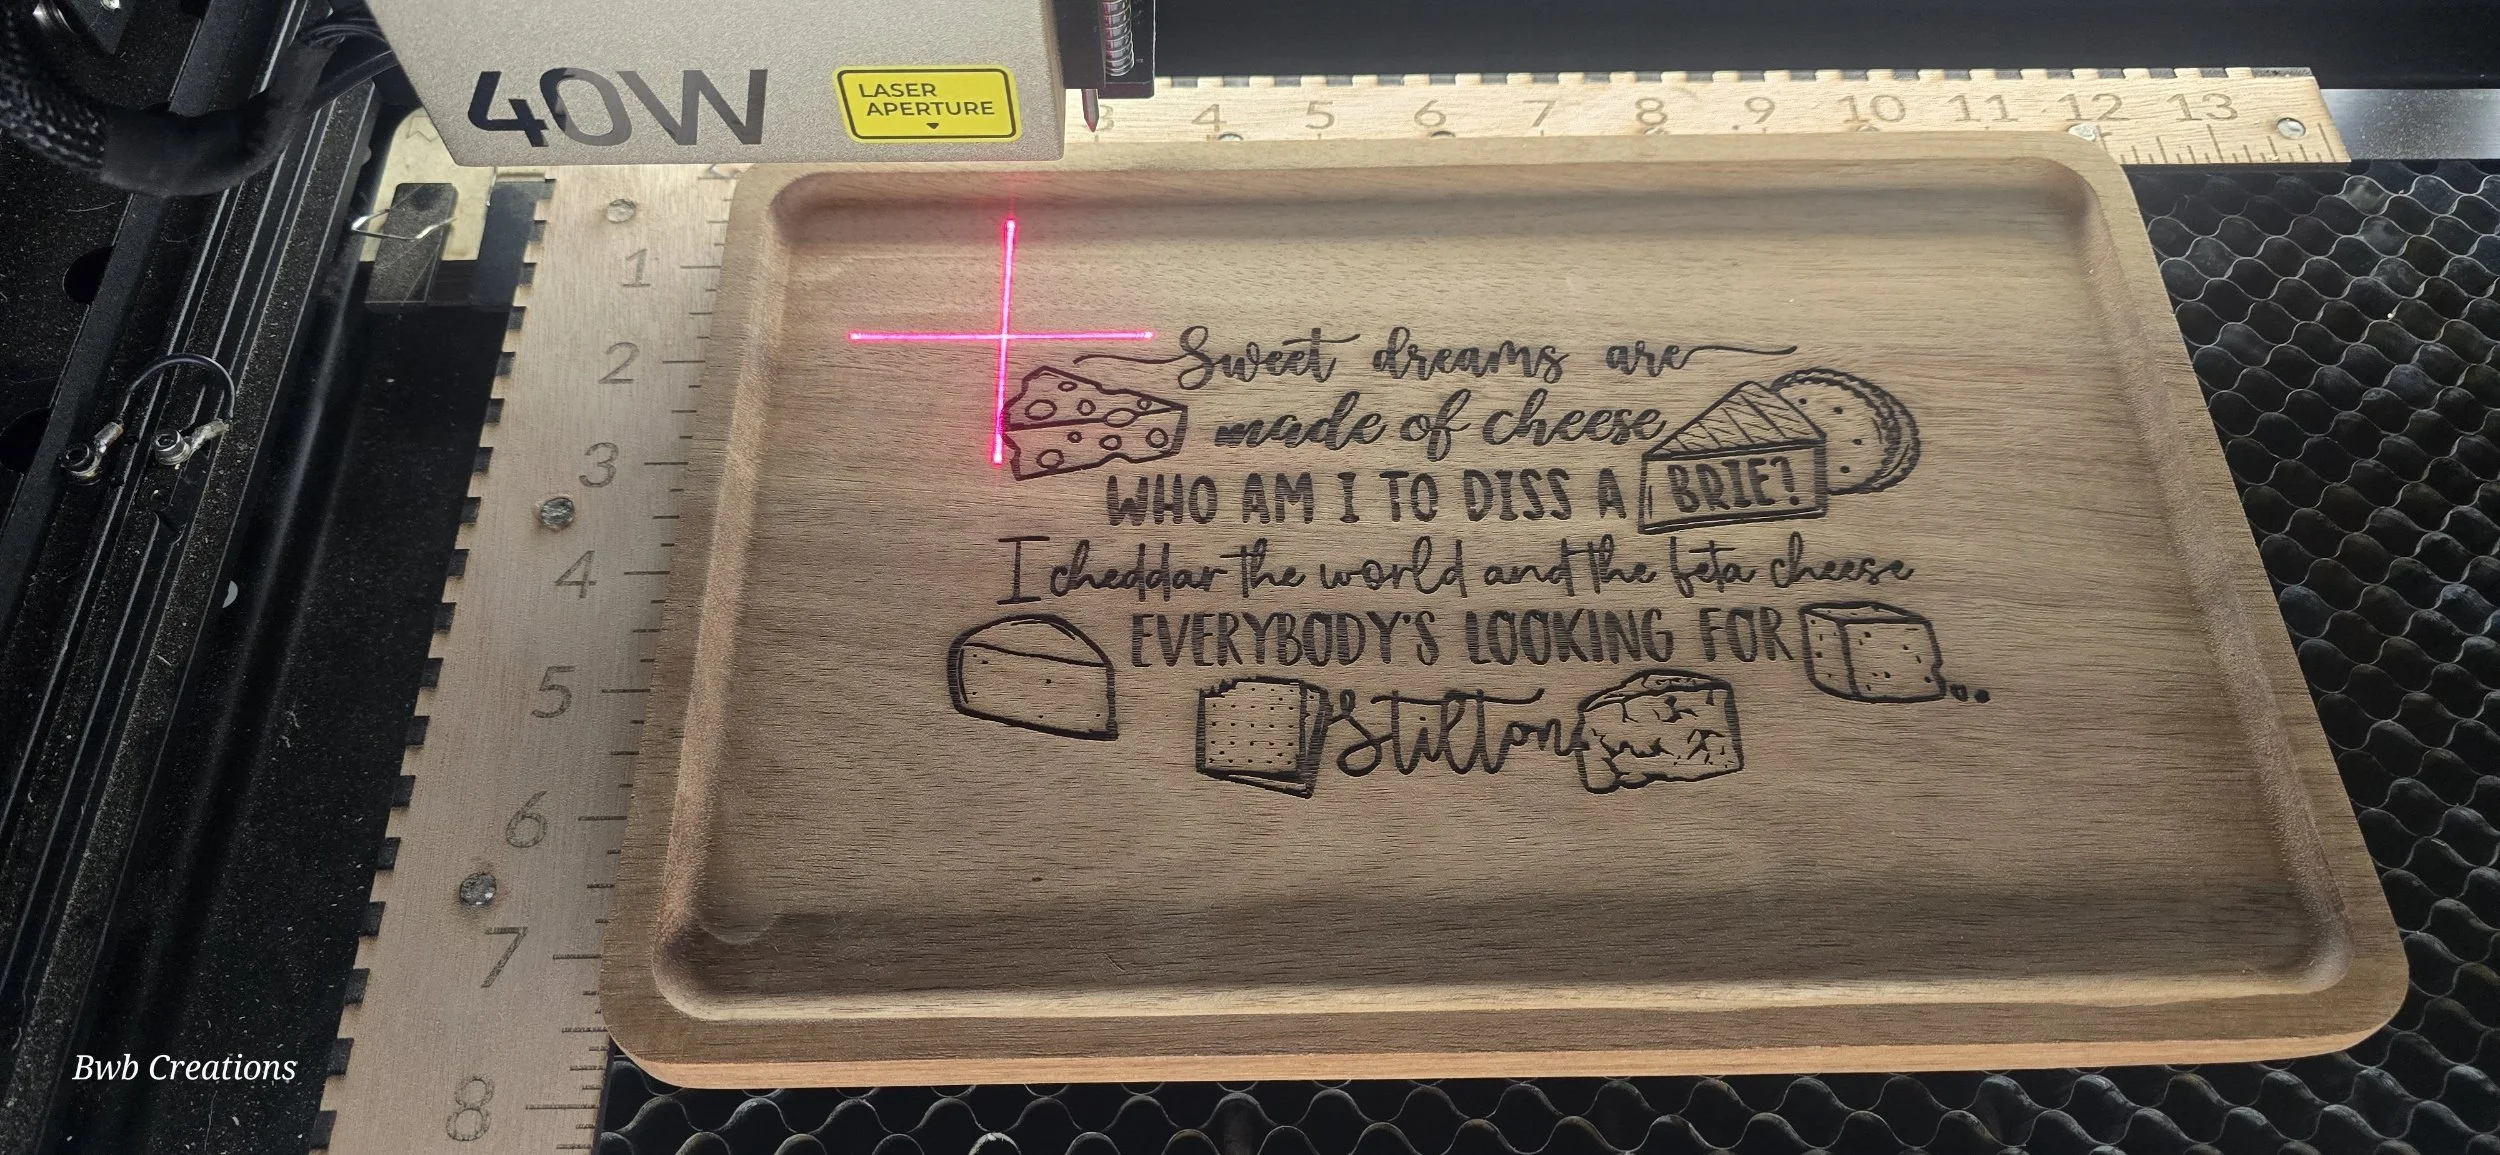 40W
LASER
APERTURE
3 4 5 6 7 8 9 10 11 12 13
1
2
3
4
5
6
7
8
Sweet dreams are
made of cheese
WHO AM I TO DISS A BRIE?
I cheddar the world and the feta cheese
EVERYBODY'S LOOKING FOR
Stilton
Bwb Creations